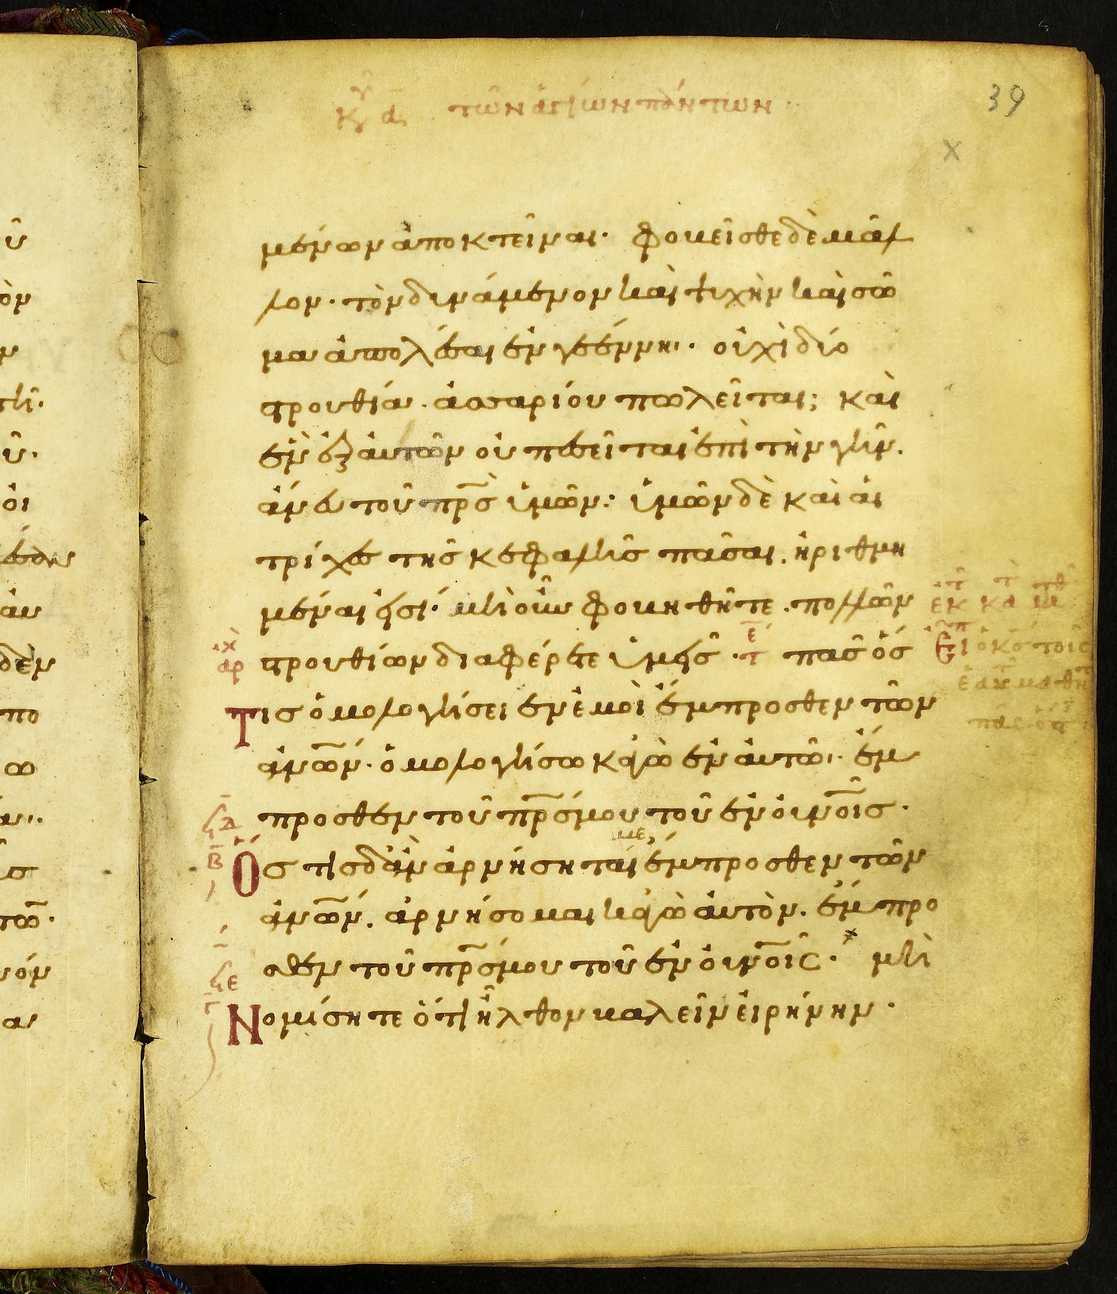 Κυ α τῶν ἁγίων πάντων
39
x
μένων ἀποκτεῖναι· φοβεῖσθε δὲ μᾶλ
λον· τὸν δυνάμενον καὶ ψυχὴν καὶ σῶ
μα ἀπολέσαι ἐν γεέννη· οὐχὶ δύο
στρουθία· ἀσσαρίου πωλεῖται; καὶ
ἓν ἐξ αὐτῶν οὐ πεσεῖται ἐπὶ τὴν γῆν.
ἄνευ τοῦ πρς ὑμῶν· ὑμῶν δὲ καὶ αἱ
τρίχες τῆς κεφαλῆς πᾶσαι, ἠριθμη
μέναι εἰσί· μὴ οὖν φοβηθῆτε· πολλῶν
αρχ στρουθίων διαφέρετε ὑμεῖς· τε πᾶς ὅσ
Τις ὁμολογήσει ἐν ἐμοὶ ἔμπροσθεν τῶν
ἀνων· ὁμολογήσω κἀγὼ ἐν αὐτῶ· ἔμ
ϟδ προσθεν τοῦ πρς μου τοῦ ἐν οὐνοις·
β Ὅς τις δ' ἂν ἀρνήσηταί με ἔμπροσθεν τῶν
ἀνων. ἀρνήσομαι κἀγὼ αὐτὸν. ἔμπρο
ϟε σθεν τοῦ πρς μου τοῦ ἐν οὐνοις· μὴ
γ Νομίσητε ὅτι ἦλθον βαλεῖν εἰρήνην·